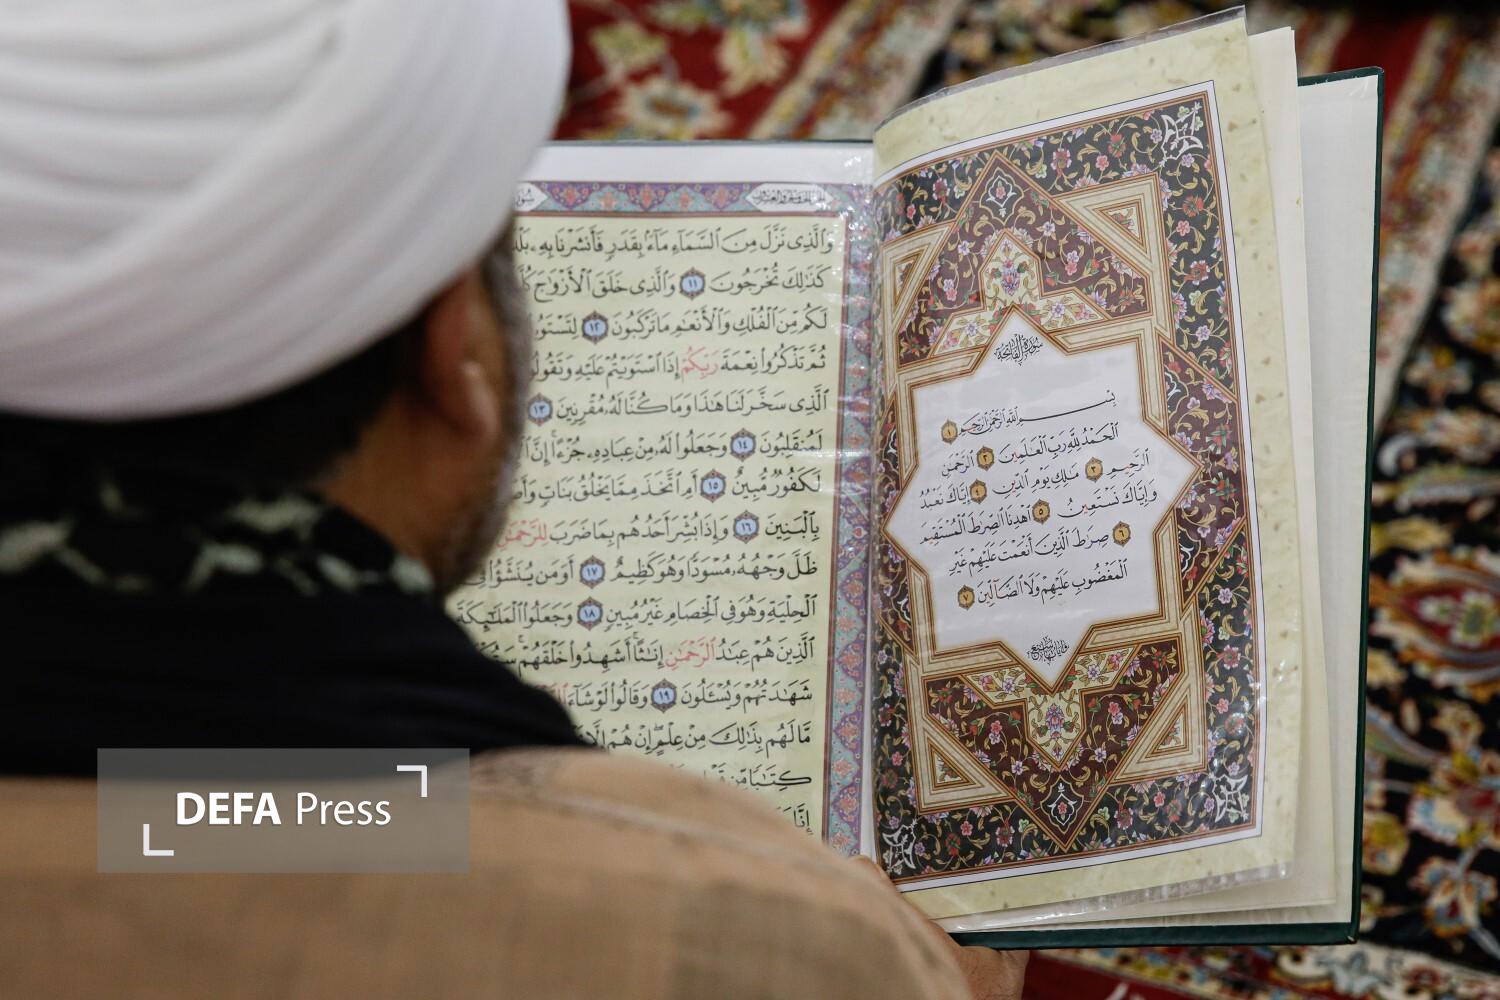 سورة الفاتحة
بِسْمِ ٱللَّهِ ٱلرَّحْمَٰنِ ٱلرَّحِيمِ ١
ٱلْحَمْدُ لِلَّهِ رَبِّ ٱلْعَٰلَمِينَ ٢ ٱلرَّحْمَٰنِ
ٱلرَّحِيمِ ٣ مَٰلِكِ يَوْمِ ٱلدِّينِ ٤ إِيَّاكَ نَعْبُدُ
وَإِيَّاكَ نَسْتَعِينُ ٥ ٱهْدِنَا ٱلصِّرَٰطَ ٱلْمُسْتَقِيمَ
٦ صِرَٰطَ ٱلَّذِينَ أَنْعَمْتَ عَلَيْهِمْ غَيْرِ
ٱلْمَغْضُوبِ عَلَيْهِمْ وَلَا ٱلضَّآلِّينَ ٧
وَٱلَّذِى نَزَّلَ مِنَ ٱلسَّمَآءِ مَآءًۢ بِقَدَرٍ فَأَنشَرْنَا بِهِۦ
كَذَٰلِكَ تُخْرَجُونَ ١١ وَٱلَّذِى خَلَقَ ٱلْأَزْوَٰجَ
لَكُم مِّنَ ٱلْفُلْكِ وَٱلْأَنْعَٰمِ مَا تَرْكَبُونَ ١٢
ثُمَّ تَذْكُرُوا۟ نِعْمَةَ رَبِّكُمْ إِذَا ٱسْتَوَيْتُمْ عَلَيْهِ وَتَقُولُوا۟
ٱلَّذِى سَخَّرَ لَنَا هَٰذَا وَمَا كُنَّا لَهُۥ مُقْرِنِينَ ١٣
لَمُنقَلِبُونَ ١٤ وَجَعَلُوا۟ لَهُۥ مِنْ عِبَادِهِۦ جُزْءًا إِنَّ
لَكَفُورٌ مُّبِينٌ ١٥ أَمِ ٱتَّخَذَ مِمَّا يَخْلُقُ بَنَاتٍ
بِٱلْبَنِينَ ١٦ وَإِذَا بُشِّرَ أَحَدُهُم بِمَا ضَرَبَ لِلرَّحْمَٰنِ
ظَلَّ وَجْهُهُۥ مُسْوَدًّا وَهُوَ كَظِيمٌ ١٧ أَوَمَن يُنَشَّؤُا۟ فِى
ٱلْحِلْيَةِ وَهُوَ فِى ٱلْخِصَامِ غَيْرُ مُبِينٍ ١٨ وَجَعَلُوا۟ ٱلْمَلَٰٓئِكَةَ
ٱلَّذِينَ هُمْ عِبَٰدُ ٱلرَّحْمَٰنِ إِنَٰثًا أَشَهِدُوا۟ خَلْقَهُمْ
شَهَٰدَتُهُمْ وَيُسْـَٔلُونَ ١٩ وَقَالُوا۟ لَوْ شَآءَ
مَّا لَهُم بِذَٰلِكَ مِنْ عِلْمٍ إِنْ هُمْ إِلَّا
كِتَٰبًا مِّن
إِنَّا
DEFA Press